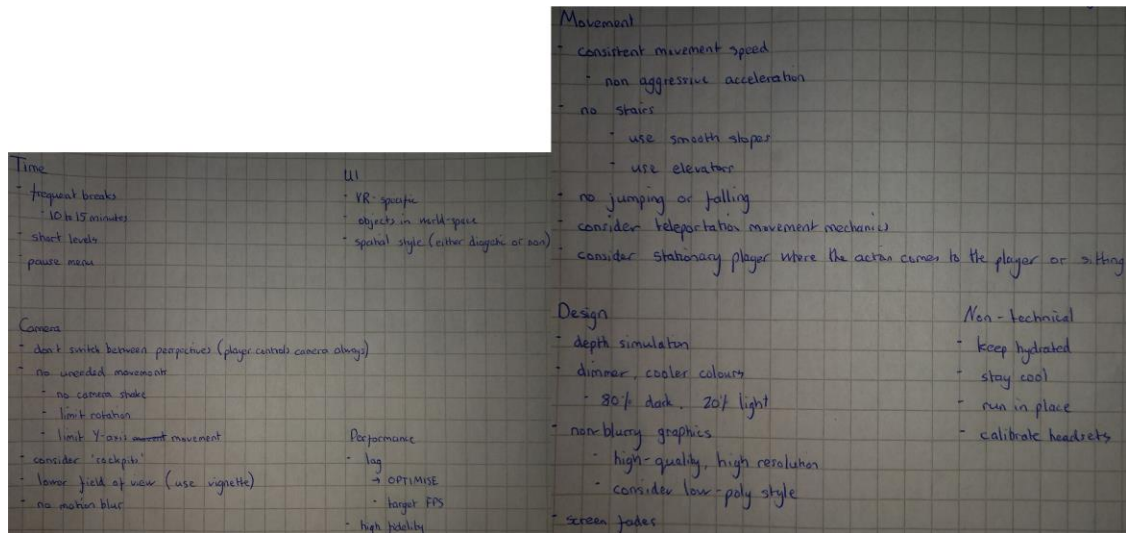 Time
- frequent breaks
- 10 to 15 minutes
- short levels
- pause menu
UI
- VR-specific
- objects in world-space
- spatial style (either diagetic or non)
Camera
- don't switch between perspectives (player controls camera always)
- no uneeded movement
- no camera shake
- limit rotation
- limit Y-axis movement
- consider 'cockpits'
- lower field of view (use vignette)
- no motion blur
Performance
- lag
→ OPTIMISE
- target FPS
- high fidelity
Movement
- consistent movement speed
- non aggressive acceleration
- no stairs
- use smooth slopes
- use elevators
- no jumping or falling
- consider teleportation movement mechanics
- consider stationary player where the action comes to the player or sitting
Design
- depth simulation
- dimmer, cooler colours
- 80% dark, 20% light
- non-blurry graphics
- high-quality, high resolution
- consider low-poly style
- screen fades
Non-technical
- keep hydrated
- stay cool
- run in place
- calibrate headsets